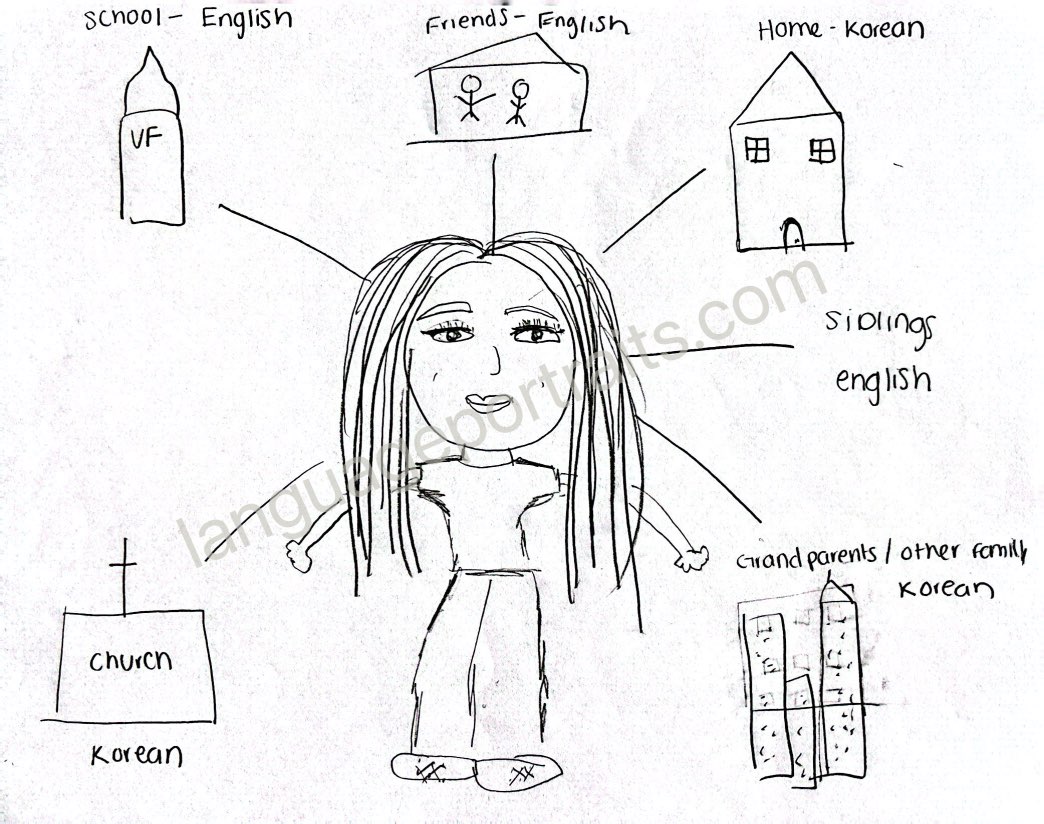 School - English
Friends - English
Home - Korean
VF
Siblings
english
Grandparents / other family
Korean
church
Korean
languageportraits.com